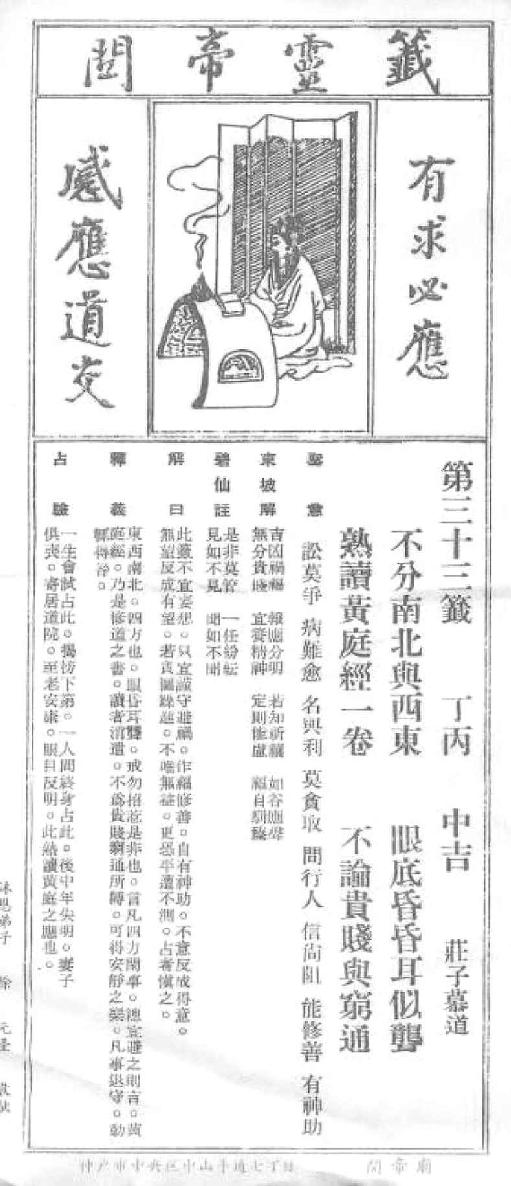 籤靈帝關
有求必應
感應道交
第三十三籤 丁丙 中吉 莊子慕道
不分南北與西東 眼底昏昏耳似聾
熟讀黃庭經一卷 不論貴賤與窮通
聖意 訟莫爭 病難愈 名與利 莫貪取 問行人 信尚阻 能修善 有神助
東坡解
吉凶禍福 報應分明 若知祈禳 如谷應聲
無分貴賤 宜養精神 定則惟虛 福自駢臻
碧仙註
是非莫管 一任紛紜
見如不見 聞如不聞
解曰
此籤不宜妄想。只宜謹守避禍。作福修善。自有神助。不意反成得意。
無望反成有望。若貪圖躁進。不唯無益。更恐平遭不測。占者慎之。
釋義
東西南北。四方也。眼昏耳聾。戒勿招惹是非也。言凡四方閒事。總宜避之則吉。黃
庭經。乃是修道之書。讀者消遣。不為貴賤窮通所轉。可得安靜之樂。凡事退守。動
輒得咎。
占驗
一生會試占此。揭榜下第。一人問終身占此。後中年失明。妻子
俱喪。寄居道院。至老安康。眼目反明。此熟讀黃庭之應也。
神戶市中央區中山手通七丁目 關帝廟
弟子 徐